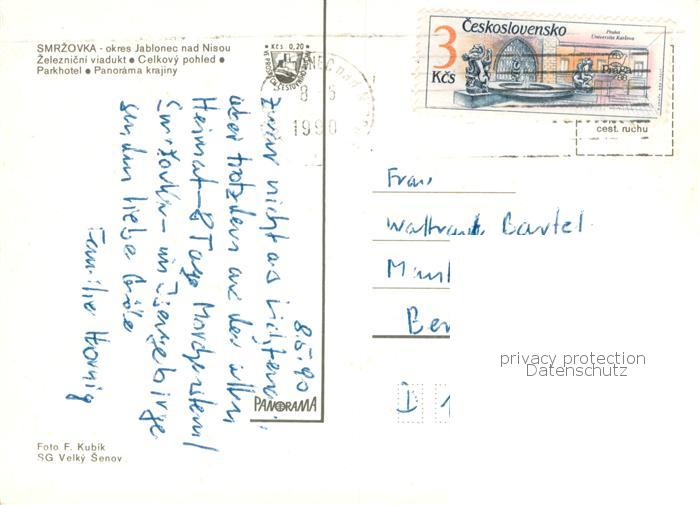 SMRŽOVKA - okres Jablonec nad Nisou
Železniční viadukt ● Celkový pohled ●
Parkhotel ● Panoráma krajiny
Kčs 0,20
8 -5
1990
3
Kčs
Československo
Praha
Univerzita Karlova
Praga
cest. ruchu
8.5.90
zwar nicht aus
aber trotzdem aus der alten
Heimat - 8 Tage
Smržovka - im Isergebirge
senden liebe Grüße
Familie Hornig
Frau
Waltraud Bartel
PANORAMA
privacy protection
Datenschutz
Foto F. Kubík
SG Velký Šenov